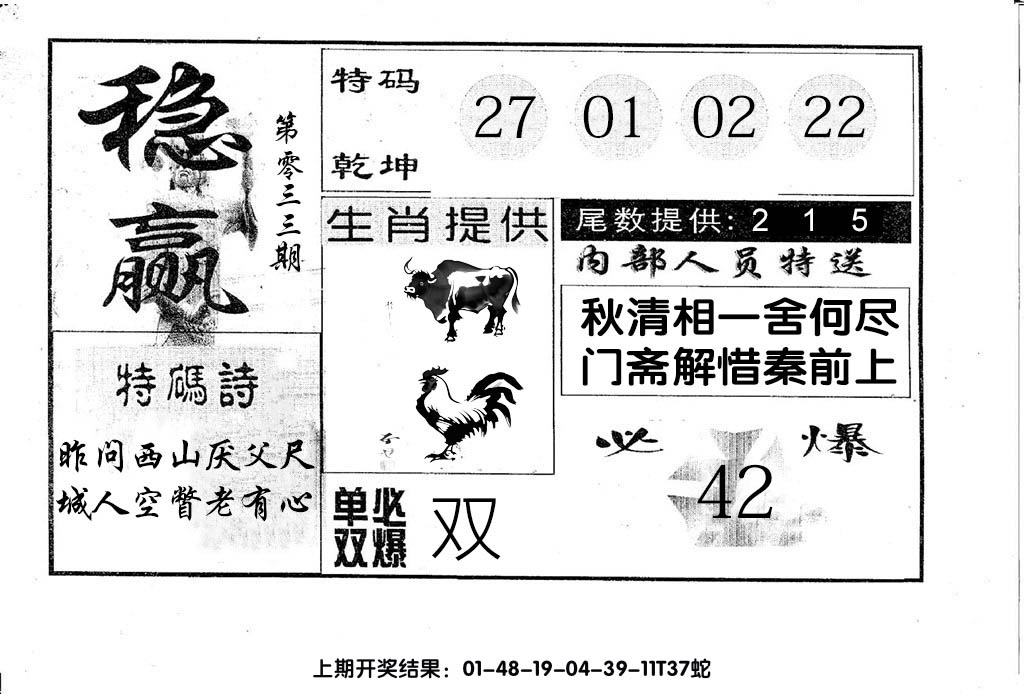 稳赢
第零三三期
特码
乾坤
27 01 02 22
生肖提供
尾数提供: 2 1 5
内部人员特送
秋清相一舍何尽
门斋解惜秦前上
特碼詩
昨问西山厌父尺
城人空瞥老有心
单双
必爆
双
必爆
42
上期开奖结果：01-48-19-04-39-11T37蛇